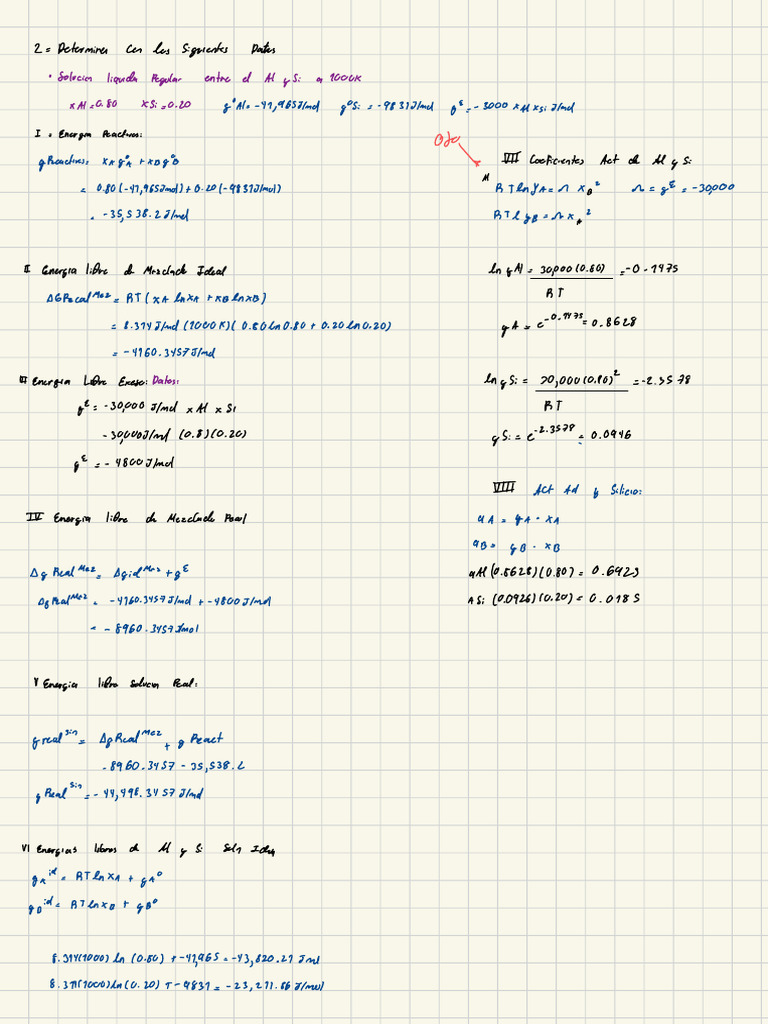 2 = Determina con los Siguientes Datos
• Solucion liquida Regular entre el Al y Si a 1000K
xAl = 0.80 xSi = 0.20 g°Al = -41,965 J/mol g°Si = -9831 J/mol g^E = -3000 xAl xSi J/mol
I = Energia Reactivos:
gReactivos = xA g°A + xB g°B
= 0.80 (-41,965 J/mol) + 0.20 (-9831 J/mol)
= -35,538.2 J/mol
II Energia libre de Mezclado Ideal
ΔGRecal^Mez = RT ( xA ln xA + xB ln xB )
= 8.314 J/mol (1000K) ( 0.80 ln 0.80 + 0.20 ln 0.20 )
= -4160.3457 J/mol
III Energia Libre Exeso: Datos:
g^E = -30,000 J/mol xAl x Si
-30,000 J/mol (0.8)(0.20)
g^E = -4800 J/mol
IV Energia libre de Mezclado Real
Δg Real^Mez = Δgid^Mez + g^E
Δg Real^Mez = -4160.3457 J/mol + -4800 J/mol
= -8960.3457 J/mol
V Energia libre Solucion Real:
g real^sln = Δg Real^Mez + g React
-8960.3457 - 35,538.2
g Real^sln = -44,498.3457 J/mol
VI Energias libres de Al y Si Soln Ideal
gA^id = RT ln xA + gA°
gB^id = RT ln xB + gB°
8.314(1000) ln (0.80) + -41,965 = -43,820.21 J/mol
8.314(1000) ln (0.20) + -9831 = -23,211.86 J/mol
Ojo
VII Coeficientes Act de Al y Si
RT ln γA = Ω xB² Ω = g^E = -30,000
RT l γB = Ω xA²
ln γAl = 30,000 (0.80) / RT = -0.1475
γA = e^-0.1475 = 0.8628
ln γSi = 30,000 (0.80)² / RT = -2.3578
γSi = e^-2.3578 = 0.0946
VIII Act Ad y Silicio:
aA = γA · xA
aB = γB · xB
aAl (0.8628)(0.80) = 0.6923
aSi (0.0926)(0.20) = 0.0185